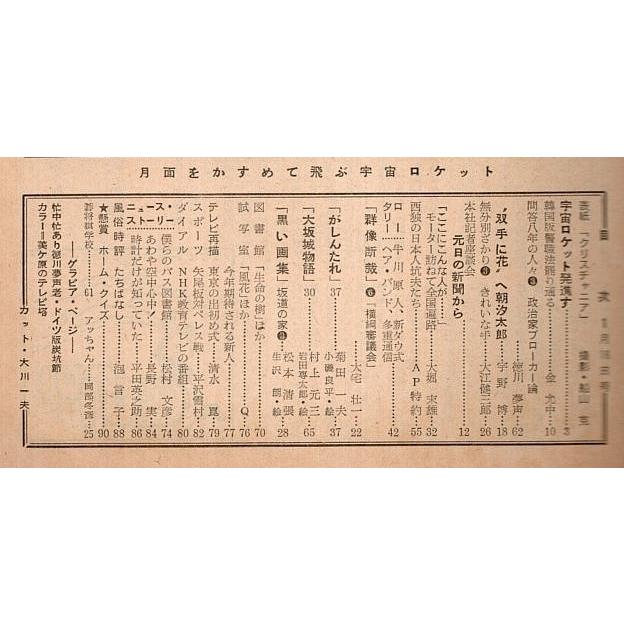 月面をかすめて飛ぶ宇宙ロケット
目次
表紙「クリスチャニア」 撮影・船山 克
宇宙ロケット発進す……3
韓国版警職法罷り通る……金 光中…10
問答八年の人々③ 政治家ブローカー論
徳川夢声…62
"双手に花"へ朝汐太郎……宇野 博…18
無分別ざかり③ きれいな手……大江健三郎…26
本社記者座談会 元日の新聞から……12
「ここにこんな人が……」
モーター訪ねて全国遍路……大堀末雄…32
西独の日本人抗夫たち……AP特約…55
ロー―牛川原人、新ダウ式
タリー―ヘア・バンド、多重通信……42
「群像断裁」⑥「横綱審議会」
大宅壮一…22
「がしんたれ」37……菊田一夫
小磯良平・絵…37
「大坂城物語」30……村上元三
岩田専太郎・絵…65
「黒い画集」坂道の家③……松本清張
生沢 朗・絵…28
図書館「生命の樹」ほか……70
試写室「風花」ほか……Q…76
今年期待される新人……77
テレビ再描 東京の出初め式……清水 崑…79
スポーツ 矢尾板対ペレス戦……平沢雪村…82
ダイアル NHK教育テレビの番組……80
僕らのバス図書館……松村文彦…74
ニュース・ストーリー
あわや空中心中!……長野 実…84
時計だけが知っていた……平田英之助…86
風俗時評 たちばなし……泡 言子…88
★懸賞 ホーム・クイズ……90
碁将棋学校……61 アッちゃん……岡部冬彦…25
――グラビア・ページ――
忙中忙あり徳川夢声老・ドイツ版炭坑節
カラー=美ケ原のテレビ塔
カット・大川一夫